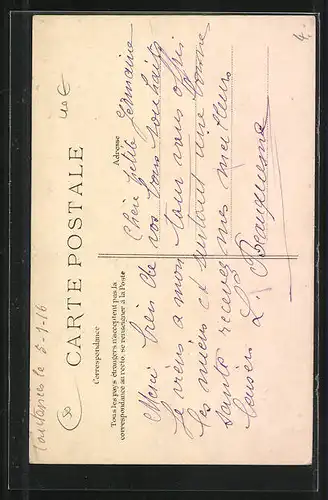 CARTE POSTALE
Correspondance
Tous les pays étrangers n'acceptent pas la
correspondance au recto, se renseigner à la Poste
Adresse
Chère petite Germaine
Merci bien de vos bons souhaits
Je viens a mon tour vous offrir
les miens et surtout une bonne
santé recevez mes meilleurs
baisers L. Beauquesne
le 5-1-16
50
40 €
4.